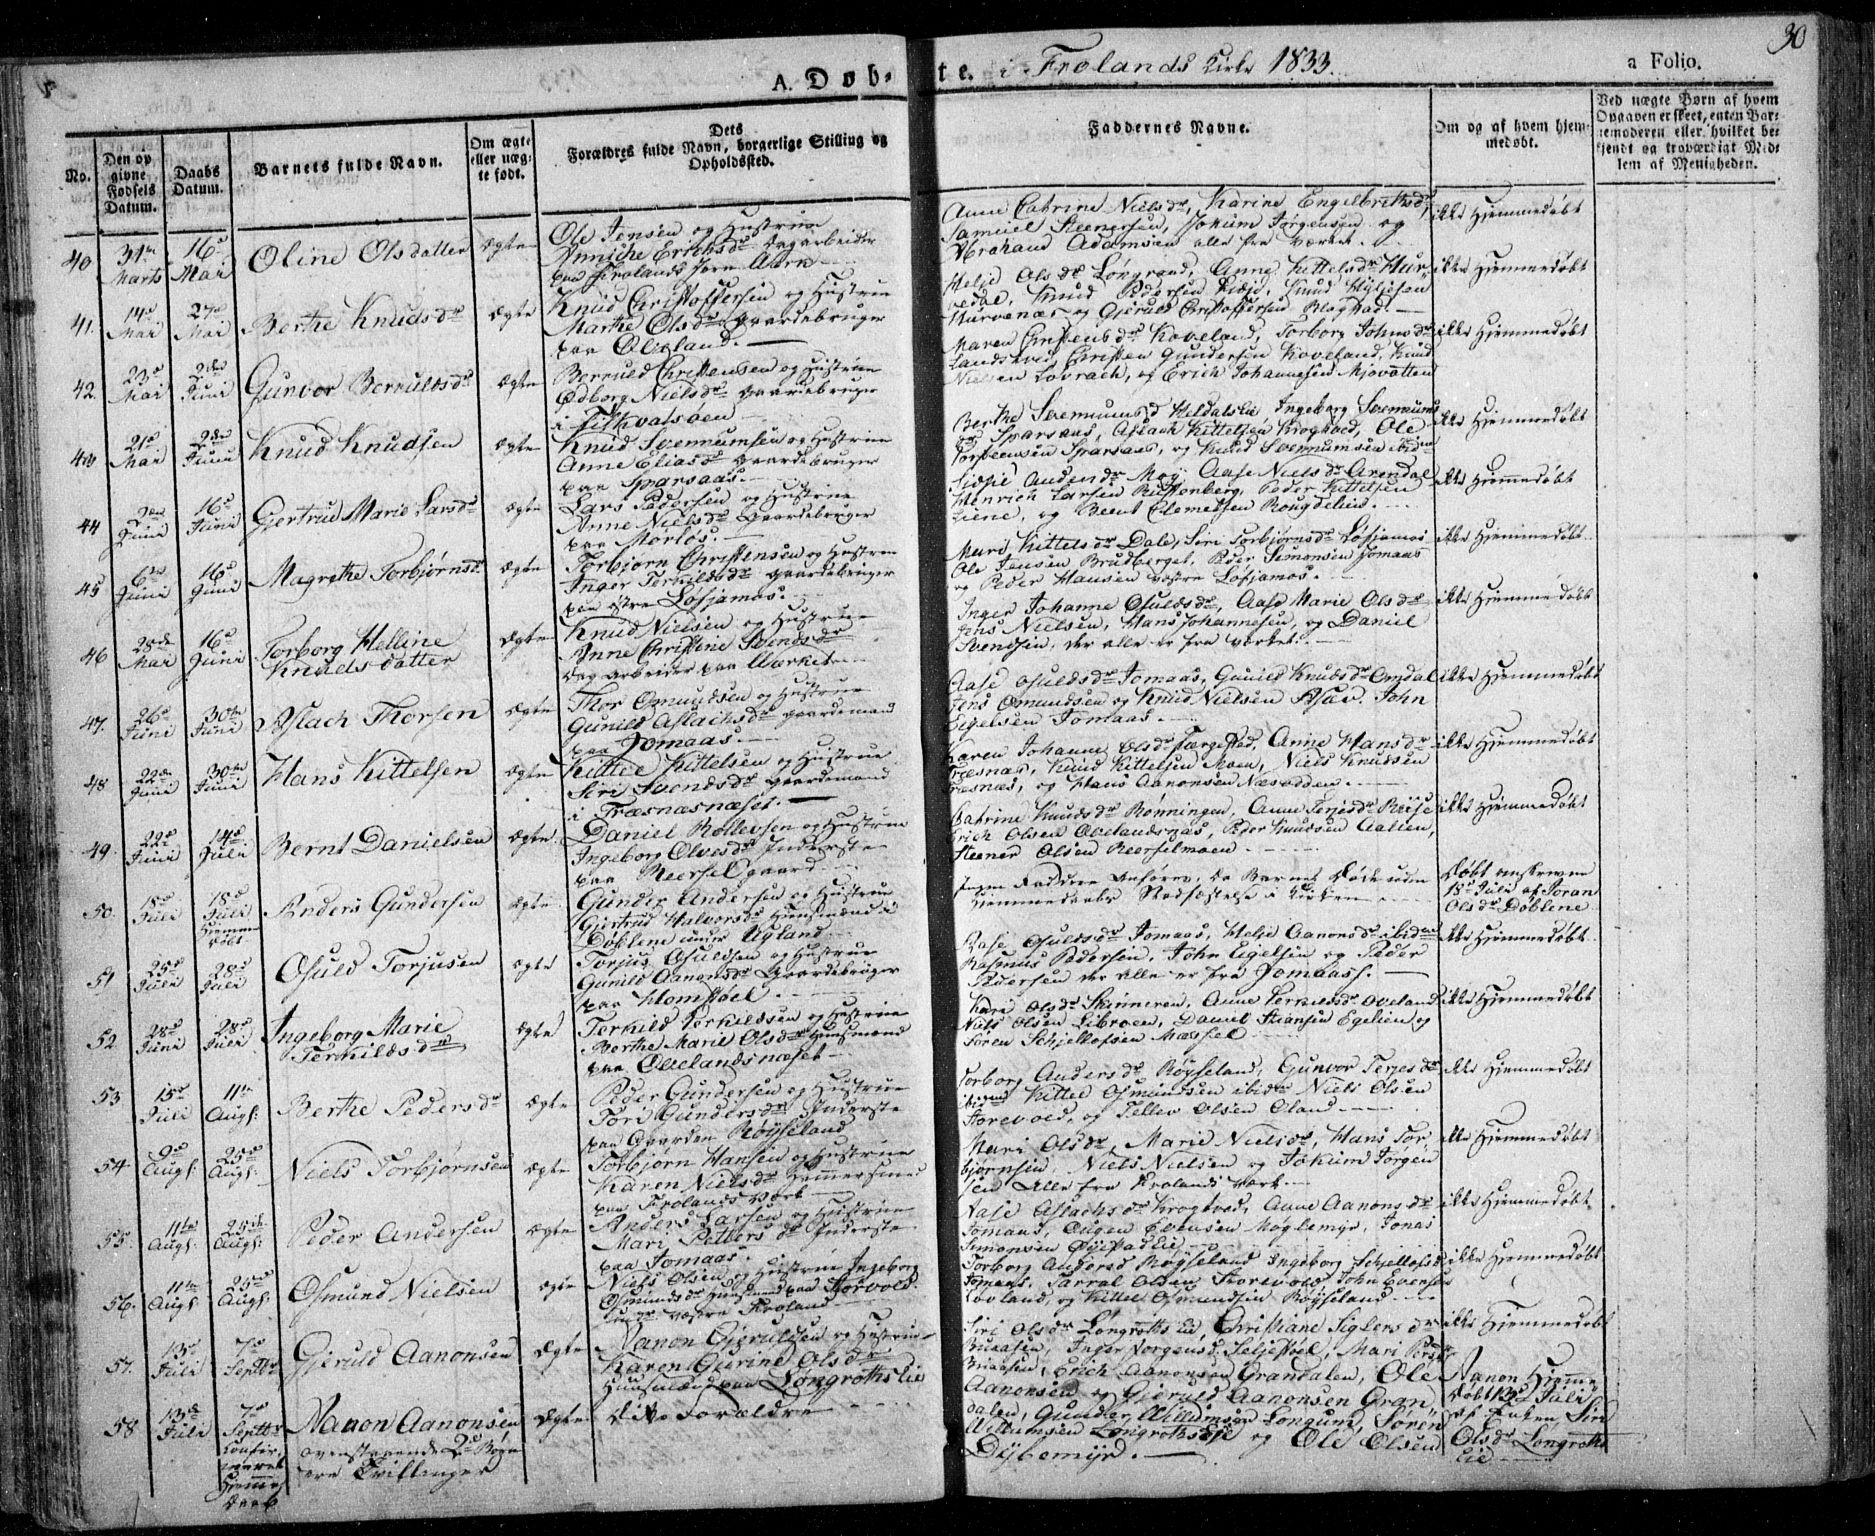 30
A. Døb-
te. i Frolands Kirke 1833.
a Folio.
No.
Den op
givne
Fødsels
Datum.
Daabs
Datum.
Barnets fulde Navn.
Om ægte
eller uæg-
te født.
Dets
Forældres fulde Navn, borgerlige Stilling og
Opholdssted.
Faddernes Navne.
Om og af hvem hjem-
medøbt.
Ved uægte Børn af hvem
Opgaven er skeet, enten Bar-
nemoderen eller hvilket be-
kjendt og troværdigt Med-
lem af Menigheden.
40 31te Marts 16de Mai Oline Olsdatter Ægte
Ole Jensen og Hustrue
Anniche Erichsdr Dagarbeider
paa Frolands Jern
Anne Catrine Nielsdr, Karine Engelbrethsdr,
Samuel Steenersen, Jokum Jørgensen og
Abraham Adamsen alle fra Værket.
ikke Hjemmedøbt
41. 14d Mai 27de Mai Berthe Knudsdr Ægte
Knud Christoffersen og Hustrue
Marthe Olsdr Gaardebruger
paa Oveland.
Helje Olsdr Løvgrand, Anne Kittelsdr Hur-
vedal, Knud Pedersen
Hurvenæs og Gjeruld Christoffersen
ikke Hjemmedøbt
42. 23d Mai 2den Juni Gunvor Berruldsdr Ægte
Berruld Christensen og Hustrue
Ødborg Nielsdr Gaardebruger
i
Maren Christensdr Koveland, Torborg Johnsdr
Landsverd, Christen Gundersen Koveland, Knud
Nielsen Lovrach, og Erich Johannesen Mjovatten
ikke Hjemmedøbt
43 21d Mai 2den Juni Knud Knudsen Ægte
Knud Svennumsen og Hustrue
Anne Eliasdr Gaardebruger
paa Sparsaas.
Berthe Svennumsd Heldalslie, Ingeborg Svennums
dr Sparsaas, Aslach Kittelsen Krogvoed, Ole
Torstensen Sparsaas, og Knud Svennumsen ibidm
ikke Hjemmedøbt
44 2den Juni 16d Juni Gjertrud Marie Larsdr Ægte
Lars Pedersen og Hustrue
Anne Nielsdr Gaardebruger
paa Morløs.
Sidsie Audensdr Moy, Aase Nielsdr Arendal
Henrich Larsen Rustenberg, Peder Kittelsen
Liene, og Beent Clemetsen
ikke Hjemmedøbt
45 6te Juni 16d Juni Magrethe Torbjørnsd Ægte
Torbjørn Christensen og Hustrue
Inger Terkildsdr Gaardebruger
paa østre Løfjamos.
Mari Kittelsdr Dale, Siri Torbjørnsdr Løfjamos
Ole Jensen Brudberget, Peder Simonsen Jomaas
og Peder Hansen vestre Løfjamos.
ikke Hjemmedøbt
46 28de Mai 16d Juni Torborg Helline
Knudsdatter Ægte
Knud Nielsen og Hustrue
Anne Christine Svendsdr
Dagarbeider paa Værket
Inger Johanne Osuldsdr, Aase Marie Olsdr
Jens Nielsen, Hans Johannesen, og Daniel
Svendsen, der alle er fra Værket.
ikke Hjemmedøbt
47. 26d Juni 30te Juni Aslach Thorsen Ægte
Thor Osmundsen og Hustrue
Gunild Aslachsdr Gaardemand
paa Jomaas.
Aase Osuldsdr Jomaas, Gunild Knudsdr Omdal
Jens Osmundsen og Knud Nielsen John
Eigelsen Jomaas.
ikke Hjemmedøbt
48 22de Juni 30te Juni Hans Kittelsen Ægte
Kittel Kittelsen og Hustrue
Siri Svendsdr Gaardemand
i Træsnæsnæset.
Karen Johanne Olsdr Færgestad, Anne Hansdr
Træsnæs, Knud Kittelsen Moen, Niels Knudsen
Træsnæs, og Hans Aanonsen Næsodden
ikke Hjemmedøbt
49. 22d Juni 14d Juli Bernt Danielsen Ægte
Daniel Rollevsen og Hustrue
Ingeborg Olvesdr Inderste
paa Meersel gaard
Catrine Knudsdr Rønningen, Anne Terjesdr
Erich Olsen Ovelandsnæs, Peder Knudsen Aalien,
Steener Olsen Meerselmoen
ikke Hjemmedøbt
50. 18d Juli 18d Juli Hjemme
døbt Anders Gundersen Ægte
Gunder Andersen og Hustrue
Gjertrud Halvorsdr Huusmand i
Døblene under Ugland.
Ingen Faddere Anføres, da Barnet Døde uden
Hjemmedaabs Stadfæstelse i Kirken
Døbt
18d Juli af Joran
Olsdr Døblene
51 25d Juli 28d Juli Osuld Torjusen Ægte
Torjus Osuldsen og Hustrue
Gunild Aanonsdr Gaardebruger
paa Homstøel.
Aase Osuldsdr Jomaas, Helje Aanonsd ibidm
Rasmus Pedersen, John Eigelsen og Peder
Pedersen der alle er fra Jomaas.
ikke Hjemmedøbt
52 28d Juni 28d Juli Ingeborg Marie
Terkildsdr Ægte
Terkild Terkildsen og Hustrue
Berthe Marie Olsdr Huusmand
paa Ovelandsnæset
Kari Olsdr Skinneren, Anne Terkildsdr Oveland
Niels Olsen Libroen, Daniel Stiansen Egelien og
Søren Schjellofsen Messel
ikke Hjemmedøbt
53 15d Juli 11te Augs: Berthe Pedersdr Ægte
Peder Gundersen og Hustrue
Tori Gundersdr Inderste
paa Gaarden Røyseland
Torborg Andersdr Røyseland, Gunvor Terjesdr
ibidm Kittel Osmundsen ibidm Niels Olsen
Storevoed, og Tellev Olsen Oland
ikke Hjemmedøbt
54 9d Augs: 25d Augs: Niels Torbjørnsen Ægte
Torbjørn Hansen og Hustrue
Karen Nielsdr Hammersmed
paa Frolands Værk
Mari Olsdr, Marie Nielsdr, Hans Tor-
bjørnsen, Niels Nielsen og Jokum Jørgen
sen alle fra Frolands Værk.
ikke Hjemmedøbt
55. 11te Augs: 25de Augs: Peder Andersen Ægte
Anders Larsen og Hustrue
Mari Pettersdr Inderste
paa Jomaas
Aase Aslachsdr Krogvad, Anne Aanonsdr
Jomaas, Eugen Evensen Møglemyr, Jonas
Simonsen
ikke Hjemmedøbt
56. 11te Augs: 25de Augs: Osmund Nielsen Ægte
Niels Olsen og Hustrue Ingeborg
Osmundsdr Huusmand paa Storvold
under Vestre Froland
Torborg Andersd Røyseland Ingeborg Schjellofsd
Jomaas, Tarral Olsen Storevold, John Evensen
Lovland, og Kittel Osmundsen Røyseland
ikke Hjemmedøbt
57. 13d Juli 7d Septbr Gjeruld Aanonsen Ægte
Aanon Gjeruldsen og Hustrue
Karen Gurine Olsdr
Huusmand paa Longrothslie
Siri Olsdr Longrothslie, Christiane Siglersdr
Bruaasen, Inger Jørgensd Seljestøel, Mari Persdr
Bruaasen, Erich Aanonsen Grandalen, Ole
Aanonsen og Gjeruld Aanonsen Gran
dalen, Gunder Willumsen Longum, Søren
Willumsen Longrothslie og Ole Olsen
Dybemyr.
ikke Hjemmedøbt
58 13d Juli 7d Septbr
Confir-
meret
Hjemme
daab
Aanon Aanonsen
ovenstaaende 2de Børn
ere Tvillinger
Ægte
dito Forældre
Aanon Hjemme
døbt 13d Juli
af Enken Siri
Olsdr Longroths
lie